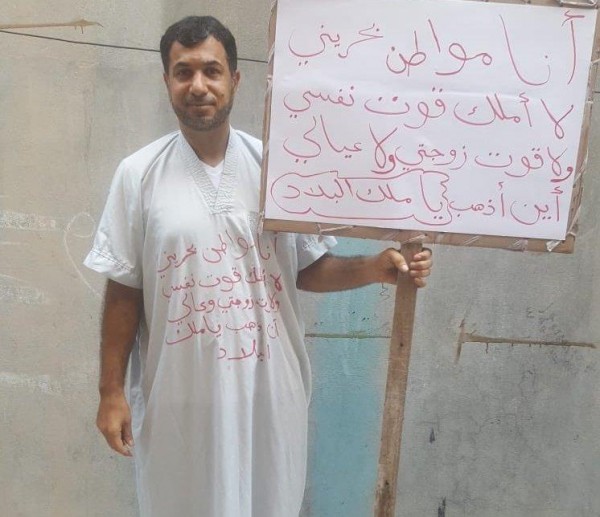 أنا مواطن بحريني
لا أملك قوت نفسي
ولا قوت زوجتي ولا عيالي
أين أذهب يا ملك البلاد
أنا مواطن بحريني
لا أملك قوت نفسي
ولا قوت زوجتي وعيالي
أن ذهب يا ملك
ابلاد